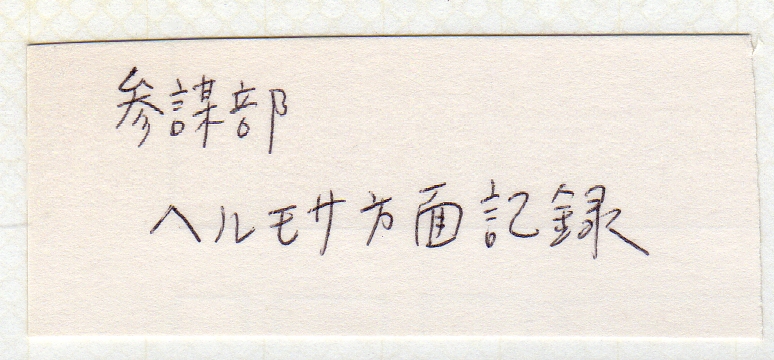 参謀部
ヘルモサ方面記録